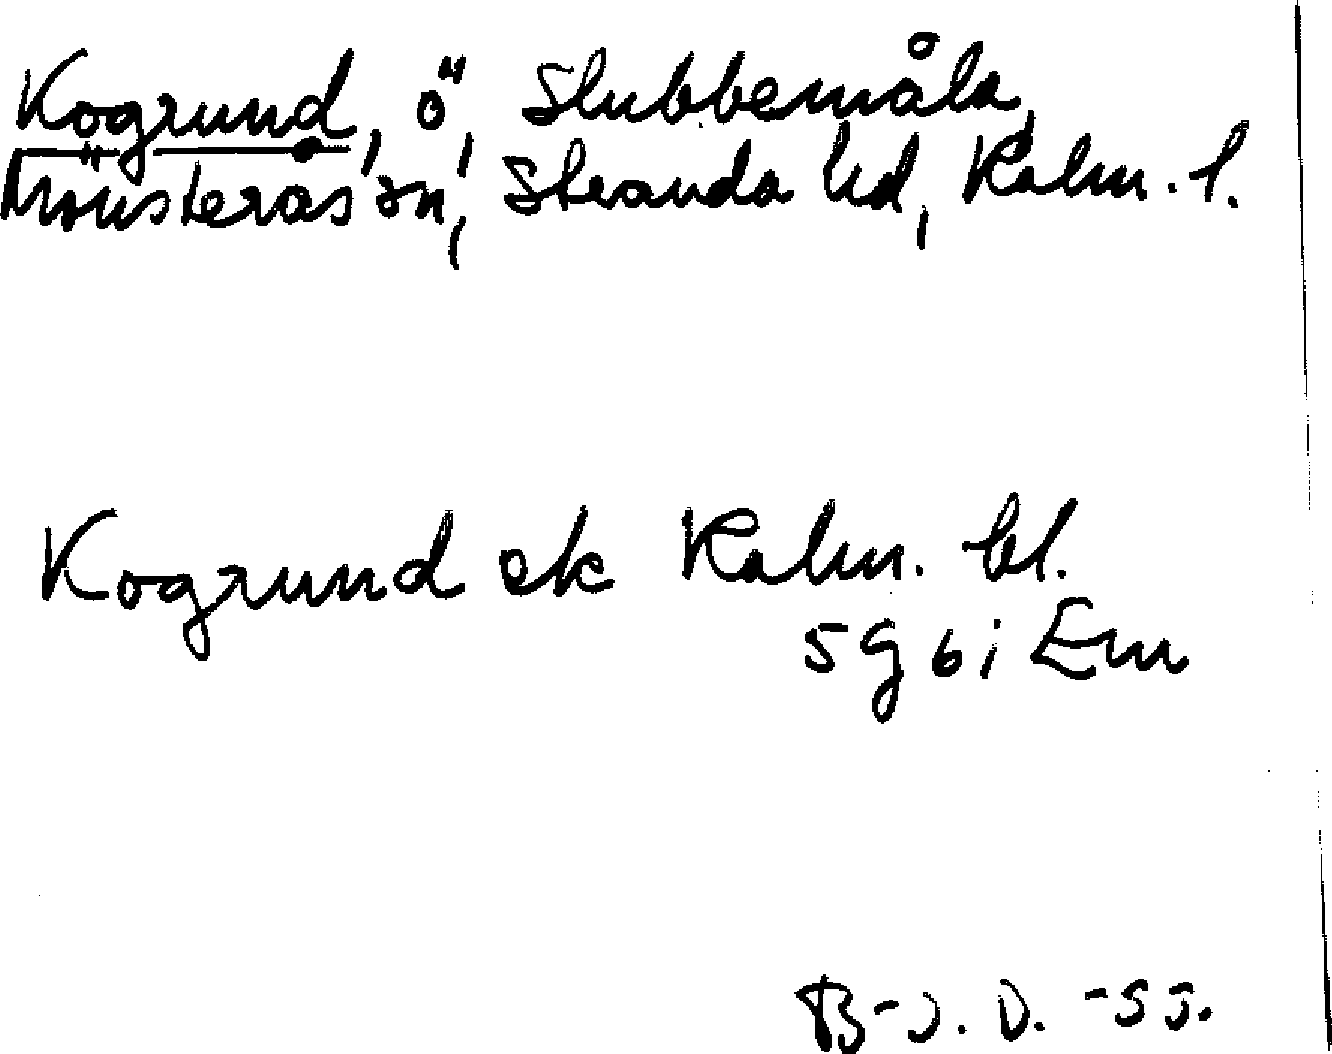 Kogrund, ö, Slubbemåla,
Mönsterås sn, Stranda hd, Kalm. l.
Kogrund ek Kalm. bl.
5 g 6 i Em
B-J. D. -55.